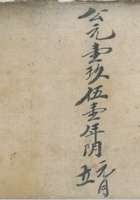 公元壹玖伍壹年阴元月
五